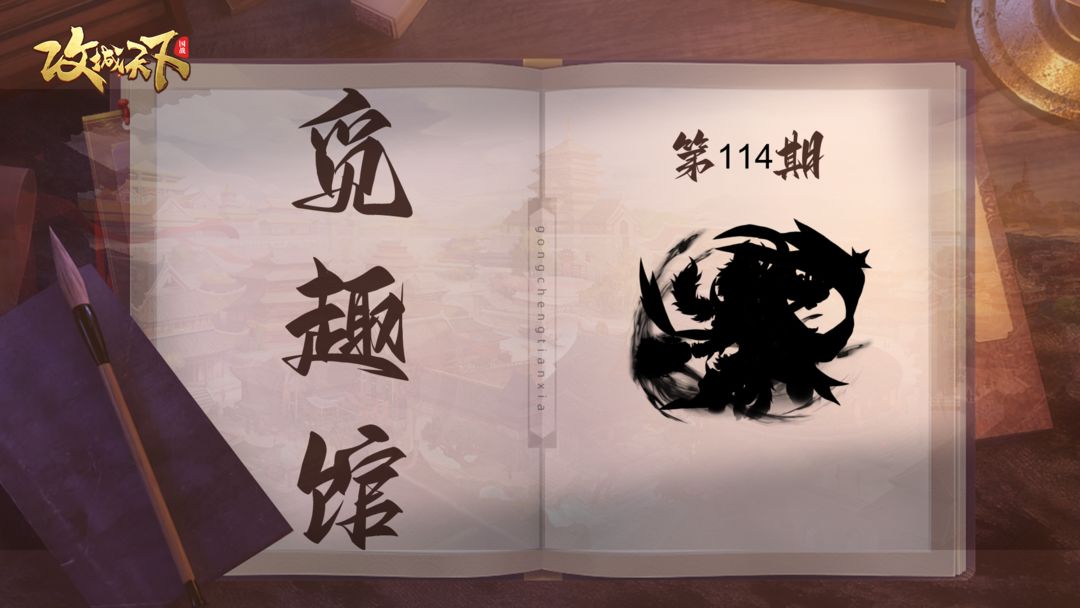 攻城天下
国战
觅趣馆
gongchengtianxia
第114期